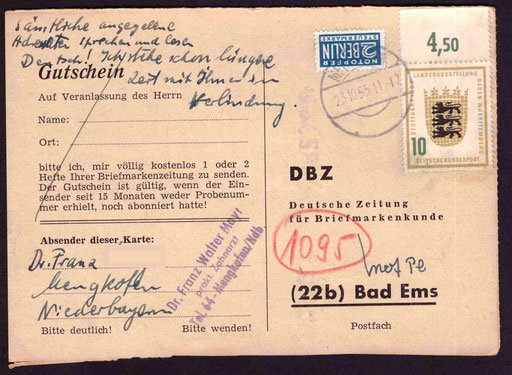 Sämtliche angegebene
Adressaten sprechen und lesen
Deutsch! Ich stehe schon längere
Zeit mit Ihnen in
Verbindung.
Gutschein
Auf Veranlassung des Herrn
Name:
Ort:
bitte ich, mir völlig kostenlos 1 oder 2
Hefte Ihrer Briefmarkenzeitung zu senden.
Der Gutschein ist gültig, wenn der Ein-
sender seit 15 Monaten weder Probenum-
mer erhielt, noch abonniert hatte!
Absender dieser Karte:
Dr. Franz
Mengkofen
Niederbayern
Bitte deutlich! Bitte wenden!
Dr. Franz Walter Mayr
prakt. Zahnarzt
Tel. 64 - Mengkofen/Ndb.
NOTOPFER
2 BERLIN
STEUERMARKE
23.10.55.11-12
4,50
LANDESAUSSTELLUNG
BADEN-WÜRTTEMBERG
10
DEUTSCHE BUNDESPOST
DBZ
Deutsche Zeitung
für Briefmarkenkunde
1095
(22b) Bad Ems
Postfach